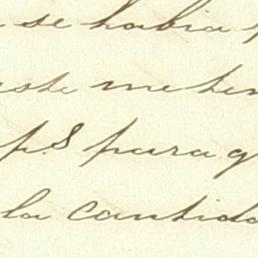 se habia
este me ten
ps para q
la cantida